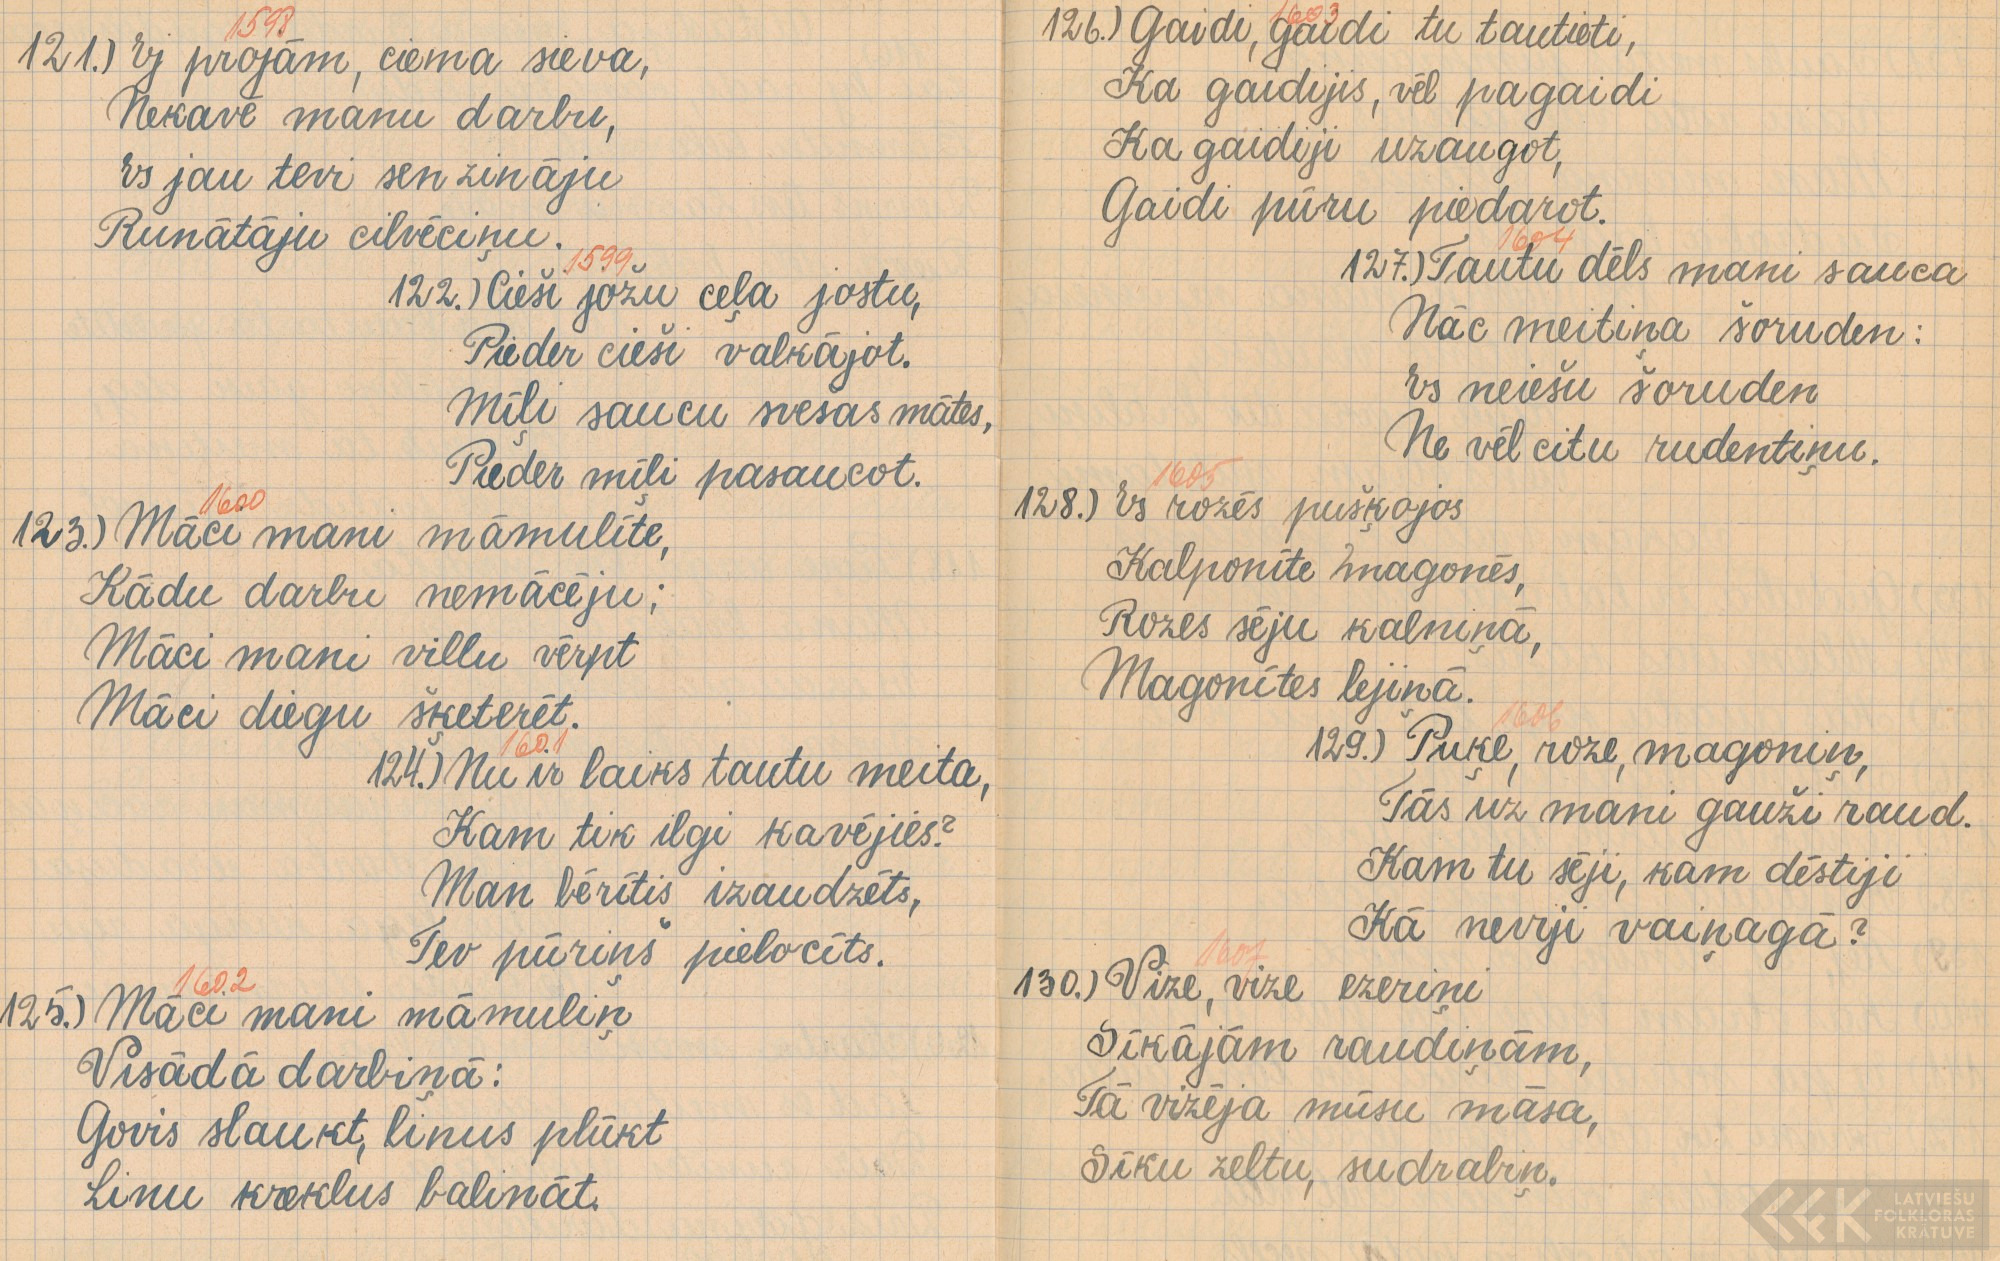 1598
121.) Ej projām, ciema sieva,
Nekavē manu darbu,
Es jau tevi sen zināju
Runātāju cilvēciņu.
1599
122.) Cieši jožu ceļa jostu,
Pieder cieši valkājot.
Mīļi saucu svešas mātes,
Pieder mīļi pasaucot.
1600
123.) Māci mani māmulīte,
Kādu darbu nemācēju;
Māci mani villu vērpt
Māci diegu šķeterēt.
1601
124.) Nu ir laiks tautu meita,
Kam tik ilgi kavējies?
Man bērītis izaudzēts,
Tev pūriņš pielocīts.
1602
125.) Māci mani māmuliņ
Visādā darbiņā:
Govis slaukt, linus plūkt
Linu kreklus balināt.
1603
126.) Gaidi, gaidi tu tautieti,
Ka gaidijis, vēl pagaidi
Ka gaidiji uzaugot,
Gaidi pūru piedarot.
1604
127.) Tautu dēls mani sauca
Nāc meitiņa šoruden:
Es neiešu šoruden
Ne vēl citu rudentiņu.
1605
128.) Es rozēs pušķojos
Kalponīte magonēs,
Rozes sēju kalniņā,
Magonītes lejiņā.
1606
129.) Puķe, roze, magoniņ,
Tās uz mani gauži raud.
Kam tu sēji, kam dēstiji
Kā neviji vaiņagā?
1607
130.) Vize, vize ezeriņi
Sīkājām raudiņām,
Tā vizēja mūsu māsa,
Sīku zeltu, sudrabiņ.
LATVIEŠU
FOLKLORAS
KRĀTUVE